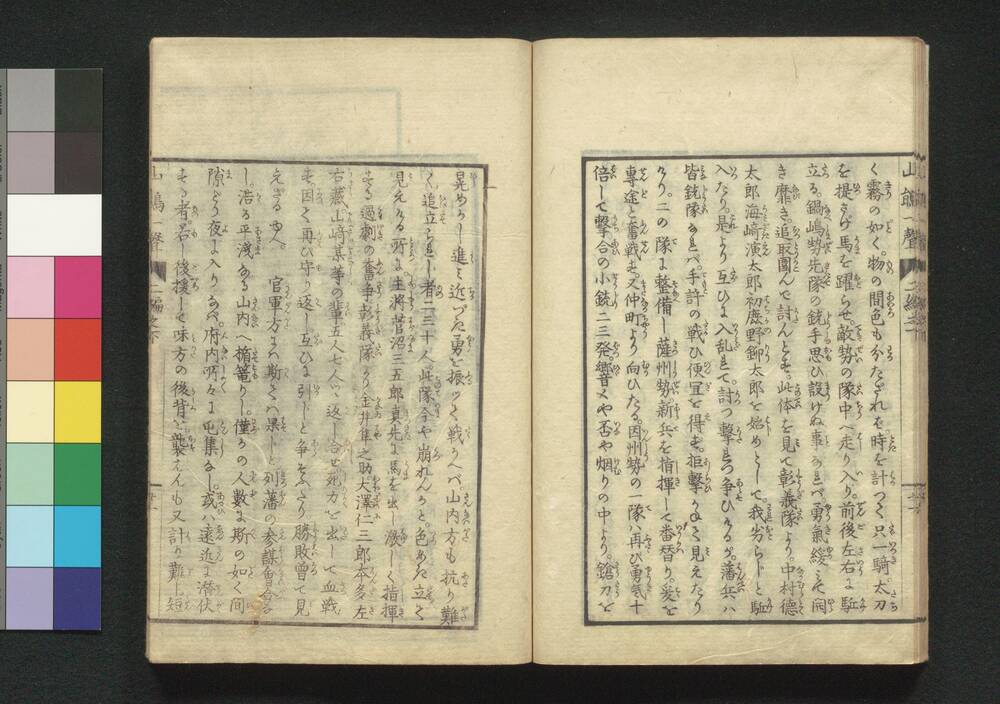 く霧の如く。物の間色も分たざれを時を計つゝ只一騎。太刀
を提さげ馬を躍らせ敵勢の隊中へ走り入り。前後左右に駈
立る。鍋嶋勢先隊の銃手思ひ設けぬ事なれバ。勇氣緩て開
き靡き。追取圍んで討んとす。此体を見て彰義隊より。中村德
太郎海崎演太郎初鹿野鉚太郎を始めとして。我劣らじと駈
入たり。是より互ひに入乱れて。討つ撃れつ争ひける。藩兵ハ
皆銃隊なれバ手詰の戦ひ便宜を得ず。拒撃かねて見えたり
けり。二の隊に整備し薩州勢。新兵を指揮して番替り。爰を
專途と奮戦す。又仲町より向ひたる。因州勢の一隊ハ再び勇氣十
倍して撃合の小銃二三発。響くや否や烟りの中より。鎗刀を
晃めかし進み近づき勇を振つて戦うへバ。山内方も抗り難
く。追立られし者二三十人此隊今や崩れんかと。色めき立て
見えける所に。主将菅沼三五郎真先に馬を出し。激しく指揮
する過劇の奮争。彰義隊より金井隼之助大澤仁三郎本多左
右蔵山﨑某等の輩五人七人づゝ返し合せ。死力を出して血戦
す。因て再び守り返し。互ひに引じと争そふたり勝敗曾て見
えざる内。 官軍方にハ斯くてハ果しと列藩の参謀會合な
し。浩る平浅なる山内へ楯篭りし。僅かの人数に斯の如く間
隙どり夜に入りなバ。府内所々に屯集なし。或ハ遠近に潜伏
する者。若し後援して味方の後背を襲ハヾも又計り難し。短